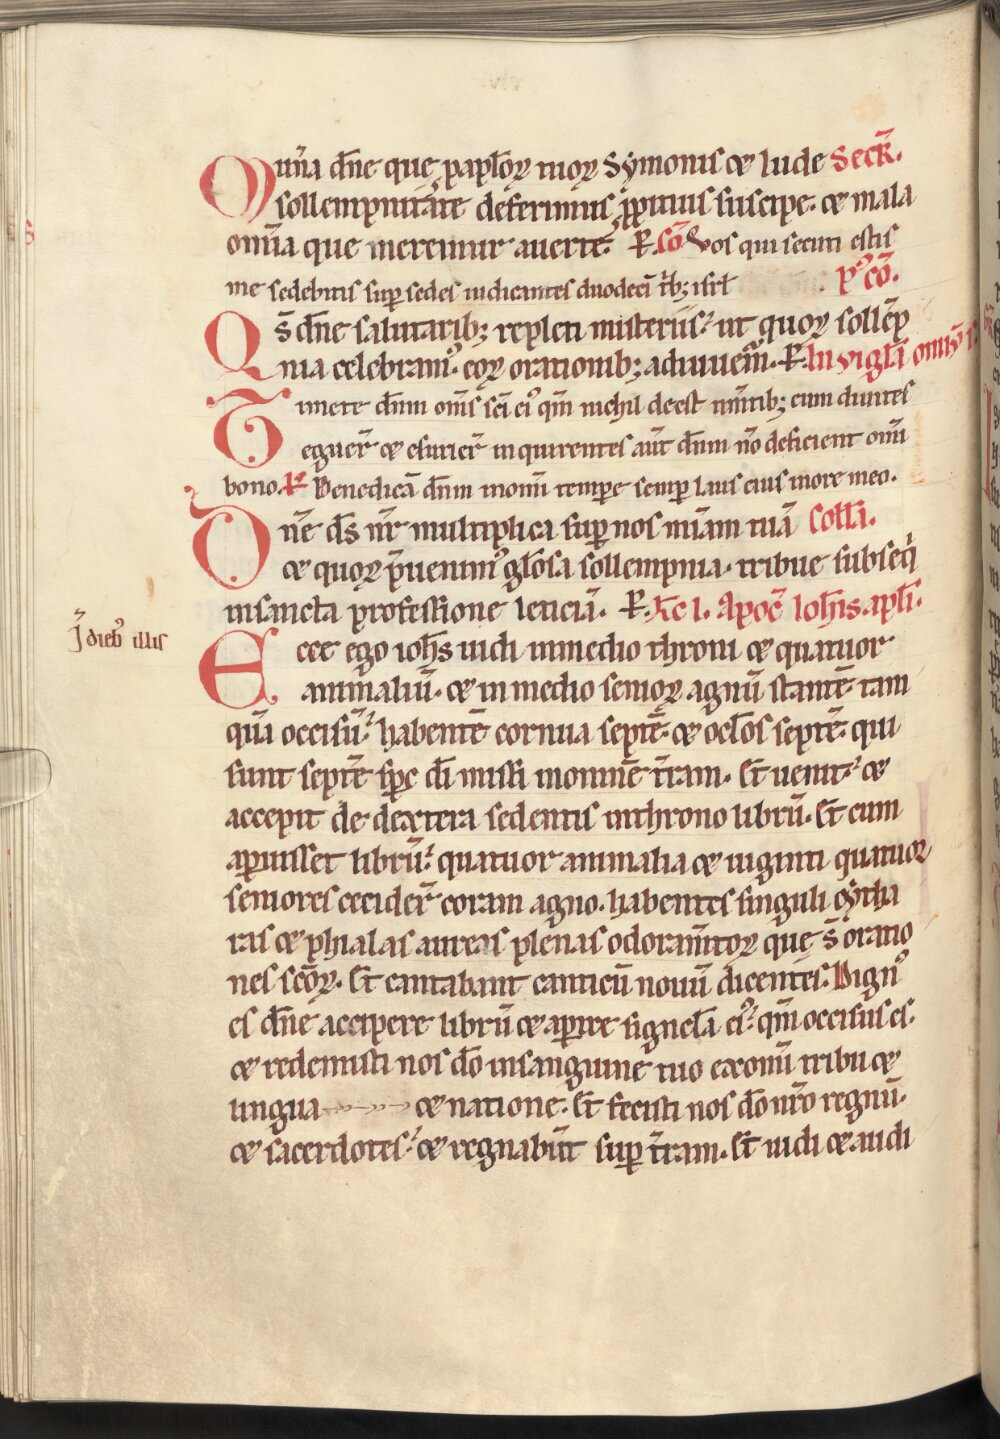 Mun̄a dn̄e que p̱ aplōꝝ tuoꝝ Sẏmonis ⁊ Iude Secr̄.
sollempnitate deferimus ꝓpitius suscipe. ⁊ mala
om̄ia que meremur auerte. R. cō Vos qui secuti estis
me sedebitis suꝑ sedes iudicantes duodecī t̄bꝫ isrl̄ P᾿ cō.
Qs̄ dn̄e salutaribꝫ repleti misteriis. ut quoꝝ sollēp
nia celebram᾿. eoꝝ orationibꝫ adiuuem̄. R. In vigl̄a om̄iū s.
Timete dn̄m om̄s sc̄i ei᾿ qm̄ nichil deest tim̄tibꝫ eum diuites
eguer̄ ⁊ esurier̄ inquirentes aūt dn̄m nō deficient omī
bono. V Benedicā dn̄m in om̄i tempore semꝑ laus eius in ore meo.
Dn̄e ds̄ nr̄ multiplica suꝑ nos mīam tuā Coll̄a.
⁊ quoꝝ p̄uenim᾿ gl̄osa sollempnia. tribue subseq̄
in sancta professione leticiā. R. Lc̄ l. Apoc̄ Ioh̄is apl̄i.
J̄ dieb᾿ illis
Ecce ego ioh̄s uidi in medio throni ⁊ quatuor
animaliū. ⁊ in medio senioꝝ agnū stantē tam
quā occisū. habentē cornua septē. ⁊ oclōs septē. qui
sunt septē sp̄c dī missi in omnē t̄ram. Et uenit. ⁊
accepit de dextera sedentis in throno librū. Et cum
aꝑuisset librū. quatuor animalia ⁊ uiginti quatuor
seniores cecider̄ coram agno. habentes singuli cẏtha
ras ⁊ phialas aureas plenas odoram̄toꝝ que s̄ oratio
nes scōꝝ. Et cantabant canticū nouū dicentes. Dign᾿
es dn̄e accipere librū ⁊ aꝑire signacl̄a ei᾿. qm̄ occisus es.
⁊ redemisti nos dō in sanguine tuo ex omī tribu ⁊
lingua ⁊ natione. Et fecisti nos dō nr̄o regnū.
⁊ sacerdotes. ⁊ regnabūt suꝑ t̄ram. Et uidi ⁊ audi